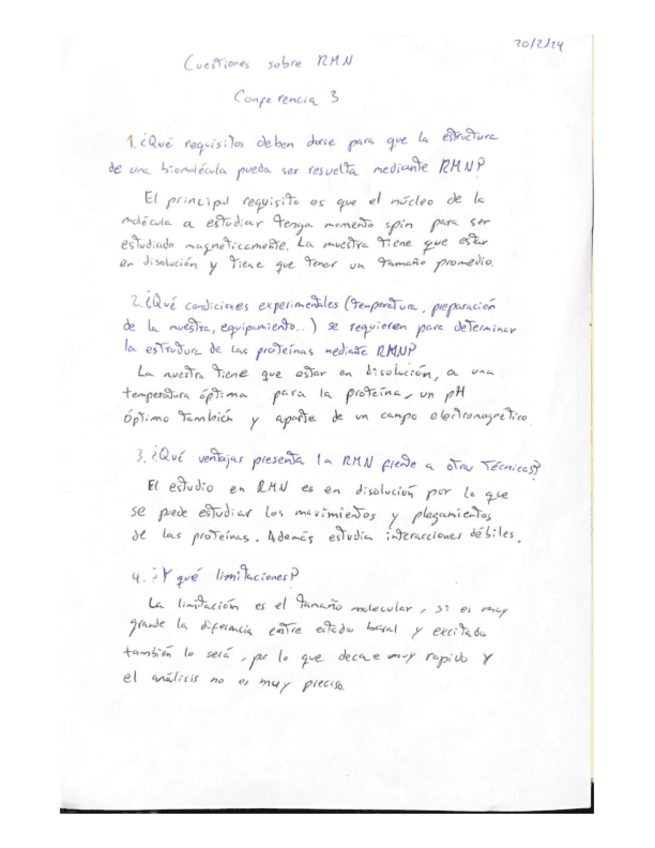 20/2/24
Cuestiones sobre RMN
Conferencia 3
1. ¿Qué requisitos deben darse para que la estructura
de una biomolécula pueda ser resuelta mediante RMN?
El principal requisito es que el núcleo de la
molécula a estudiar tenga momento spin para ser
estudiado magnéticamente. La muestra tiene que estar
en disolución y tiene que tener un tamaño promedio.
2. ¿Qué condiciones experimentales (temperatura, preparación
de la muestra, equipamiento..) se requieren para determinar
la estructura de las proteínas mediante RMN?
La muestra tiene que estar en disolución, a una
temperatura óptima para la proteína, un pH
óptimo también y aparte de un campo electromagnético.
3. ¿Qué ventajas presenta la RMN frente a otras técnicas?
El estudio en RMN es en disolución por lo que
se puede estudiar los movimientos y plegamientos
de las proteínas. Además estudia interacciones débiles.
4. ¿Y qué limitaciones?
La limitación es el tamaño molecular, si es muy
grande la diferencia entre estado basal y excitado
también lo será, por lo que decae muy rapido y
el análisis no es muy preciso.